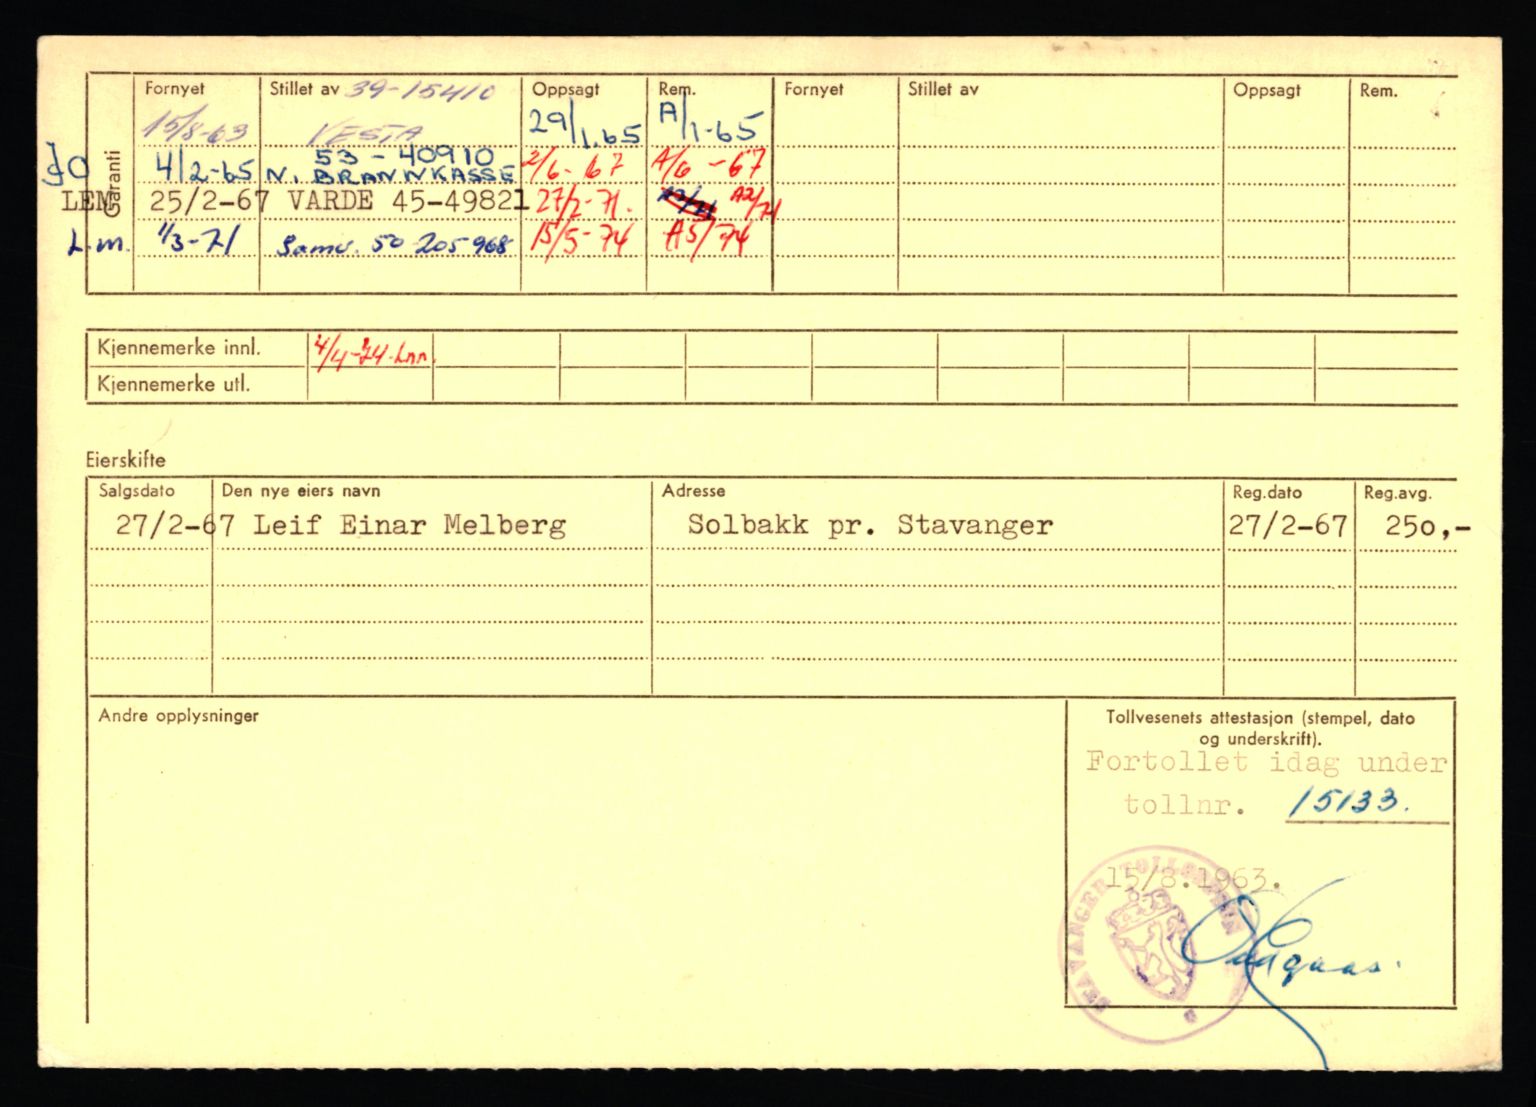 Fornyet Stillet av 39-15410 Oppsagt Rem. Fornyet Stillet av Oppsagt Rem.
Garanti
15/8-63 VESTA 29/1.65 A/1-65
JO 4/2-65 53-40910 N. BRANNKASSE 2/6-67 A/6-67
LEM 25/2-67 VARDE 45-49821 27/2-71. A2/71
L.m. 1/3-71 Samv. 50 205968 15/5-74 A5/74
Kjennemerke innl. 4/4-74 Lnn.
Kjennemerke utl.
Eierskifte
Salgsdato Den nye eiers navn Adresse Reg.dato Reg.avg.
27/2-67 Leif Einar Melberg Solbakk pr. Stavanger 27/2-67 250,-
Andre opplysninger
Tollvesenets attestasjon (stempel, dato
og underskrift).
Fortollet idag under
tollnr. 15133.
15/8.1963.
STAVANGER